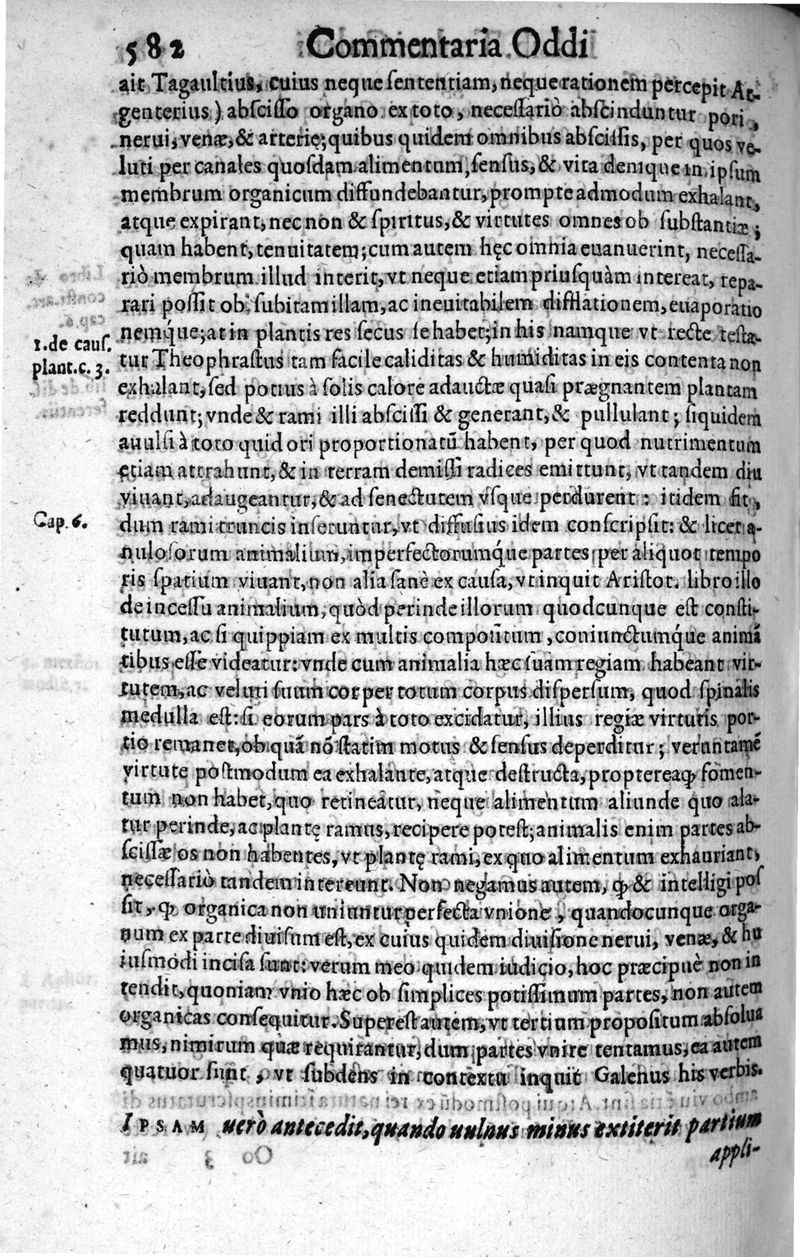 582 Commentaria Oddi
ait Tagaultius, cuius neque sententiam, neque rationem percepit Ar-
genterius) abscisso organo ex toto, necessariò abscinduntur pori,
nerui, venæ, & arterię; quibus quidem omnibus abscissis, per quos ve-
luti per canales quosdam alimentum, sensus, & vita denique in ipsum
membrum organicum diffundebantur, prompte admodum exhalant,
atque expirant, nec non & spiritus, & virtutes omnes ob substantiæ;
quam habent, tenuitatem; cum autem hęc omnia euanuerint, necessa-
riò membrum illud interit, vt neque etiam priusquàm intereat, repa-
rari possit ob subitam illam, ac ineuitabilem difflationem, euaporatio
nemq́ue; at in plantis res secus se habet; in his namque vt recte testa-
1. de caus.
plant. c. 3.
tur Theophrastus tam facile caliditas & humiditas in eis contenta non
exhalant, sed potius à solis calore adauctæ quasi prægnantem plantam
reddunt; vnde & rami illi abscissi & generant, & pullulant; siquidem
auulsi à toto quid ori proportionatũ habent, per quod nutrimentum
etiam attrahunt, & in terram demissi radices emittunt, vt tandem diu
viuant, adaugeantur, & ad senectutem vsque perdurent: itidem fit,
Cap. 6.
dum rami truncis inseruntur, vt diffusius idem conscripsit: & licet a-
nulosorum animalium, imperfectorumq́ue partes per aliquot tempo
ris spatium viuant, non alia sanè ex causa, vt inquit Aristot. libro illo
de incessu animalium, quòd perinde illorum quodcunque est consti-
tutum, ac si quippiam ex multis compositum, coniunctumq́ue animã
tibus esse videatur: vnde cum animalia hæc suam regiam habeant vir-
tutem, ac veluti suum cor per totum corpus dispersum, quod spinalis
medulla est: si eorum pars à toto excidatur, illius regiæ virtutis por-
tio remanet, ob quã nõ statim motus & sensus deperditur; veruntamẽ
virtute postmodum ea exhalante, atque destructa, proptereaꝙ fomen-
tum non habet, quo retineatur, neque alimentum aliunde quo ala-
tur perinde, ac plantę ramus, recipere potest; animalis enim partes ab-
scissæ os non habentes, vt plantę rami, ex quo alimentum exhauriant,
necessariò tandem intereunt. Non negamus autem, ꝙ & intelligi pos
sit, ꝙ organica non uniuntur perfecta vnione, quandocunque orga-
num ex parte diuisum est, ex cuius quidem diuisione nerui, venæ, & hu
iusmodi incisa sunt: verum meo quidem iudicio, hoc præcipuè non in
tendit, quoniam vnio hæc ob simplices potissimum partes, non autem
organicas consequitur. Superest autem, vt tertium propositum absolua
mus, nimirum quæ requirantur, dum partes vnire tentamus, ea autem
quatuor sunt, vt subdens in contextu inquit Galenus his verbis.
IPSAM uerò antecedit, quando uulnus minus extiterit partium
appli-